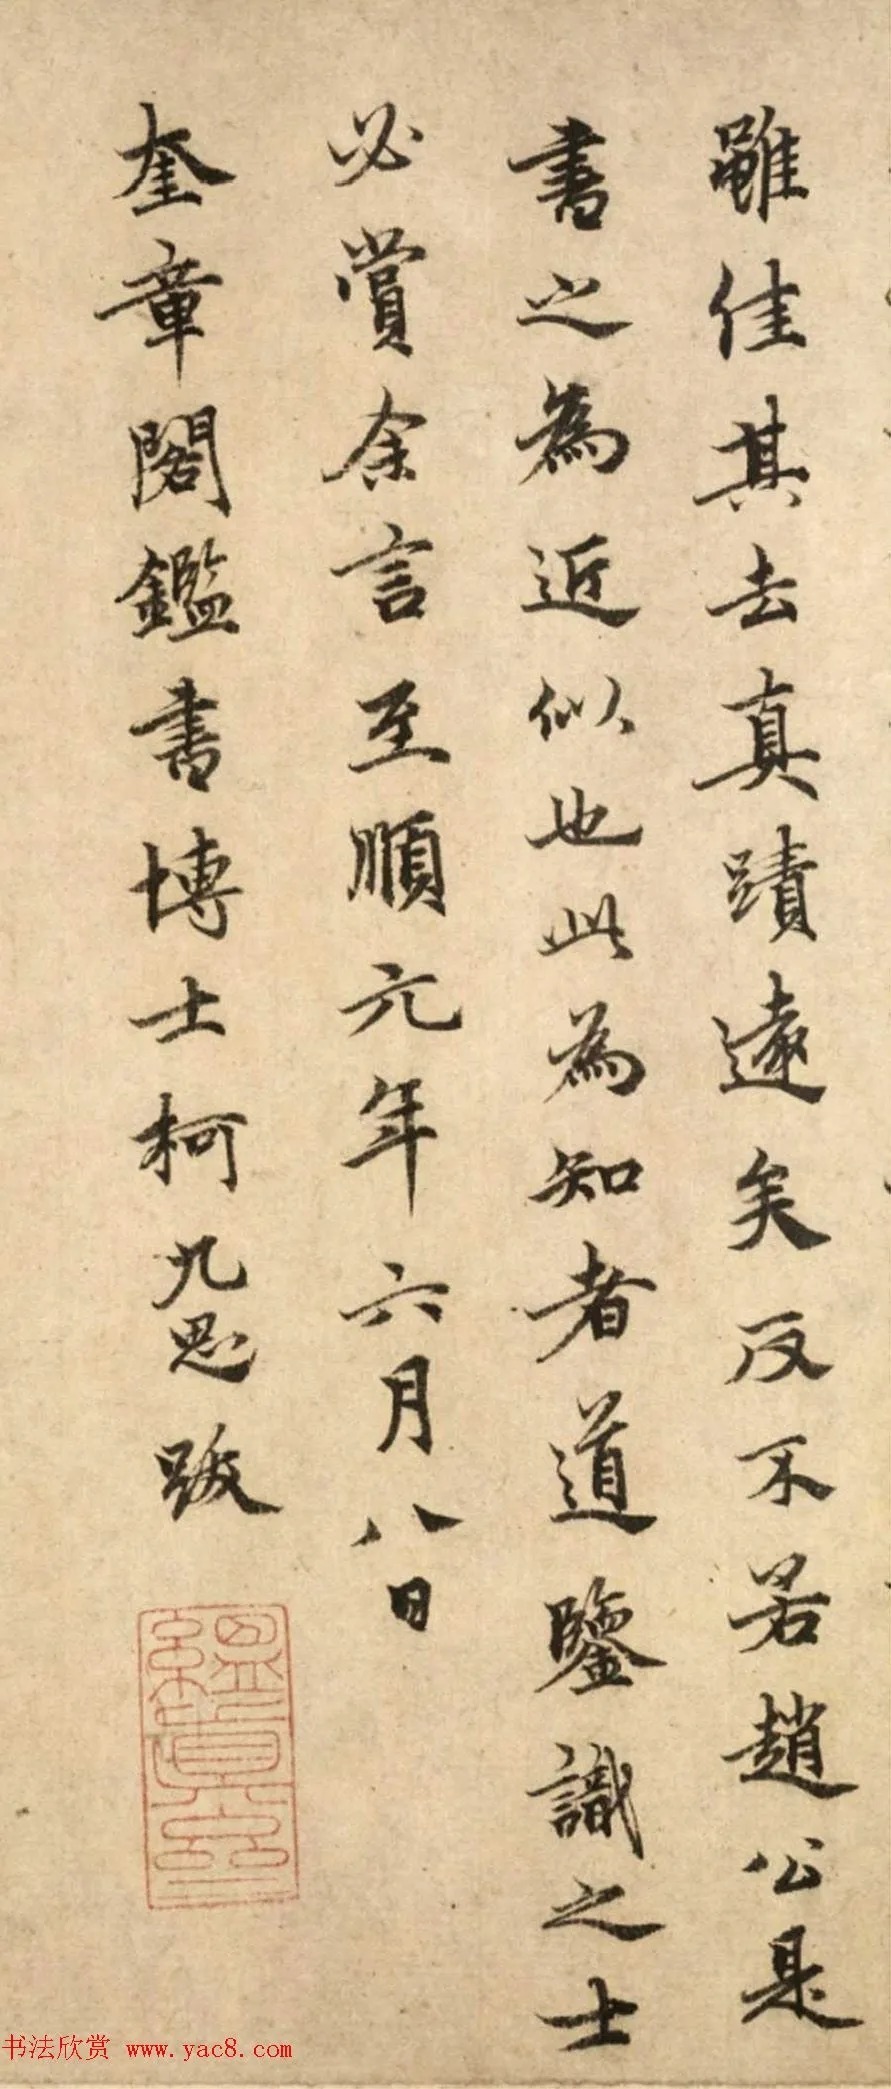 雖佳其去真蹟遠矣反不若趙公是
書之為近似也此為知者道鑒識之士
必賞余言至順元年六月八日
奎章閣鑑書博士柯九思跋
书法欣赏 www.yac8.com